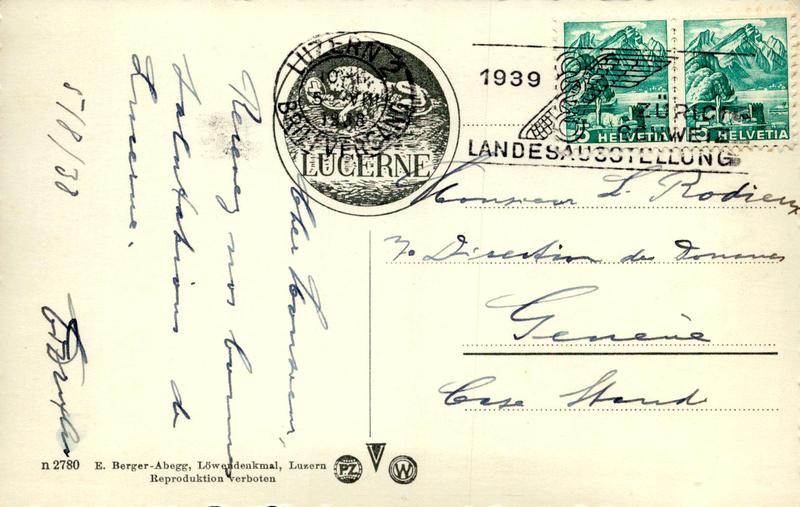 5/8/38
Cher Monsieur,
Recevez nos bonnes
salutations de
Lucerne.
LUZERN 2
BRIEFVERSAND
LUCERNE
1939
ZÜRICH
SCHWEIZ
LANDESAUSSTELLUNG
5 HELVETIA
5 HELVETIA
Monsieur L. Rodieux
% Direction des Douanes
Genève
Case Stand
n 2780 E. Berger-Abegg, Löwendenkmal, Luzern
Reproduktion verboten
PZ
W